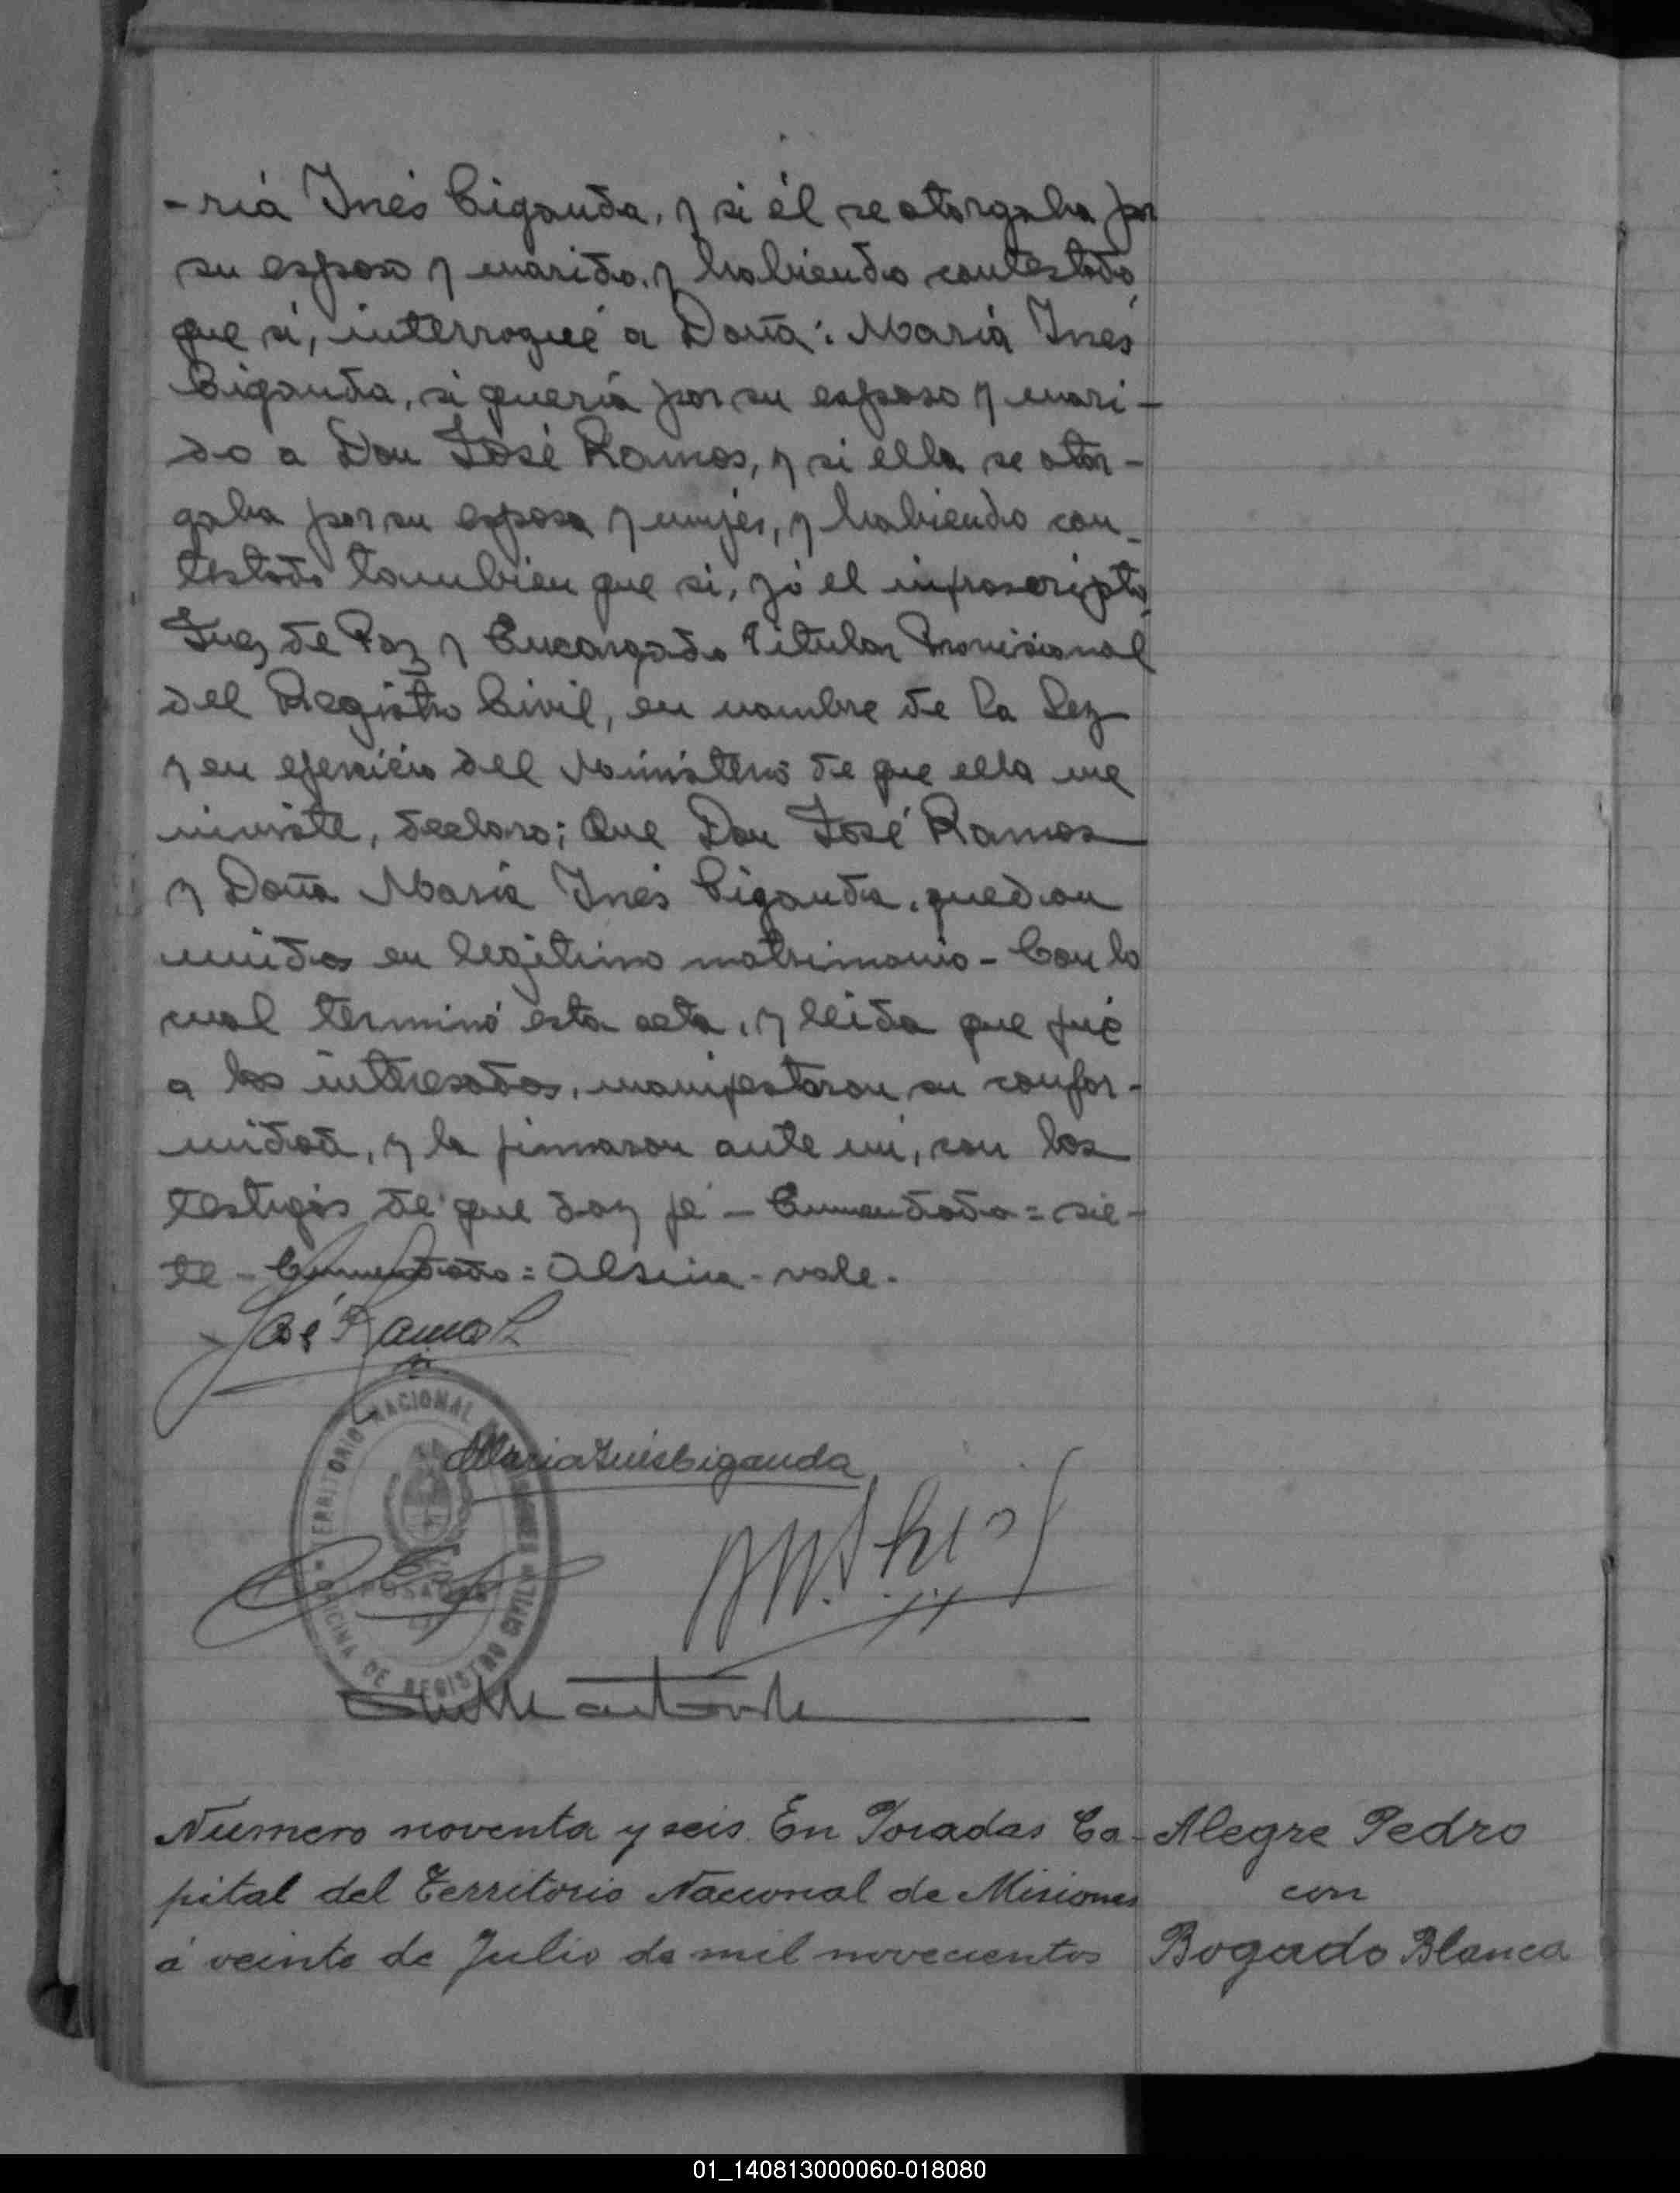 -ria Inés Ciganda, y si él se otorgaba por
su esposo y marido, y habiendo contestado
que sí, interrogué a Doña: María Inés
Ciganda, si quería por su esposo y mari-
do a Don José Ramos, y si ella se otor-
gaba por su esposa y mujer, y habiendo con-
testado tambien que si, yó el infrascripto
Juez de Paz y Encargado Titular Provisional
del Registro Civil, en nombre de la Ley
y en ejercicio del Ministerio de que ella me
inviste, declaro; Que Don José Ramos
y Doña María Inés Ciganda, quedan
unidos en legitimo matrimonio - Con lo
cual terminó esta acta, y leida que fué
a los interesados, manifestaron su confor-
midad, y la firmaron ante mi, con los
testigos de que doy fé - Enmendado = sie-
te - Enmendado = Alsina - vale.
José Ramos
TERRITORIO NACIONAL DE MISIONES
Maria Inés Ciganda
POSADAS
OFICINA DE REGISTRO CIVIL
Numero noventa y seis. En Posadas Ca- Alegre Pedro
pital del Territorio Nacional de Misiones con
á veinte de Julio de mil novecientos Bogado Blanca
01_140813000060-018080